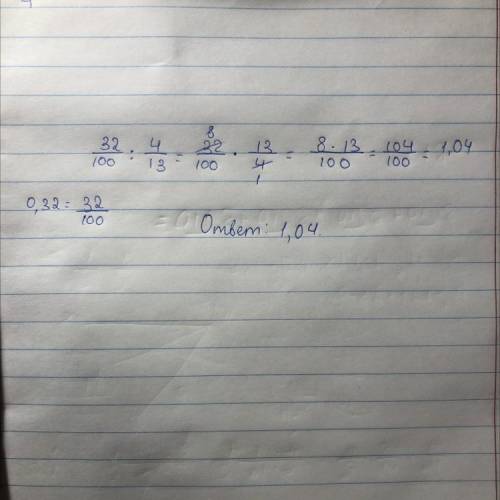 32/100 : 4/13 = 8 32/100 · 13/4 1 = 8·13/100 = 104/100 = 1,04
0,32 = 32/100
Ответ: 1,04